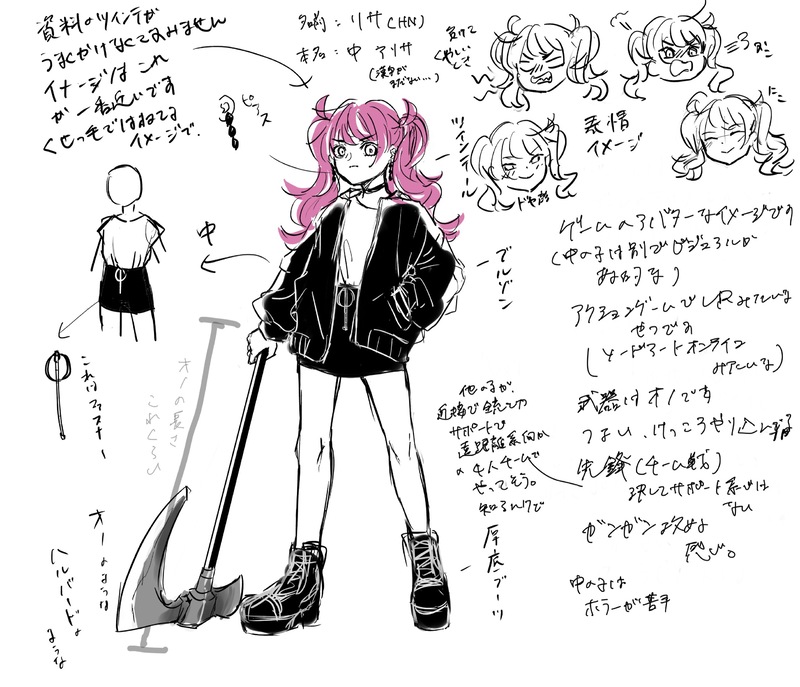 資料のツインテが
うまくかけなくてすみません
イメージは これ
が 一番近いです
くせっ毛ではねてる
イメージで。
名前：リサ(HN)
本名：中 アリサ
(漢字が
まだない…)
ピアス
ツインテール
負けて
くやしい
とき
表情
イメージ
ドヤ顔
中
ブルゾン
これはファスナー
オノの長さ
これくらい
オノのような
ハルバードの
ような
厚底ブーツ
ゲームのアバターなイメージです
(中の子は別でビジュアルが
ある的な)
アクションゲームでVRみたいな
やつです
(ソードアートオンライン
みたいな)
武器はオノです
つよい、けっこうやりこんでる
先鋒(チーム戦)
決してサポート系では
ない
ガンガン攻める
感じ。
中の子は
ホラーが苦手
他の子が、
近接で銃とか
サポートで
遠距離系向か
の4人チームで
やってそう。
知らんけど